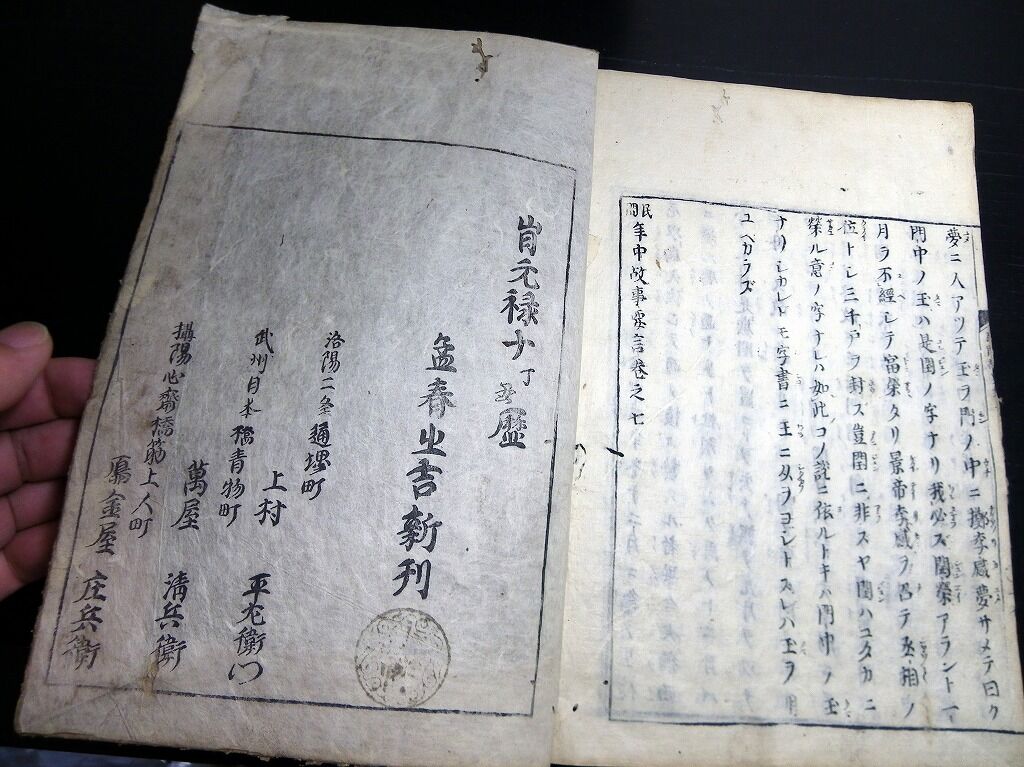 夢ニ人アツテ玉ヲ門ノ中ニ擲李感夢サメテ曰ク
門中ノ玉ハ是閏ノ字ナリ我必ズ閏榮アラント一
月ヲ不經シテ富榮タリ景帝李感ヲ召テ丞相ノ
位トシ三千戸ヲ封ズ豈閏ニ非スヤ閏ハユタカニ
榮ル意ノ字ナレハ如此コノ説ニ依ルトキハ門中ノ玉
ナリシカレトモ字書ニ王ニ从ヲヨシトスレハ玉ヲ用
ユベカラズ
民間年中故事要言卷之七
旹元禄十丁丑暦
孟春之吉新刊
洛陽二条通堺町
上村平左衛門
武州日本橋青物町
萬屋清兵衛
攝陽心齋橋筋上人町
鴈金屋庄兵衛